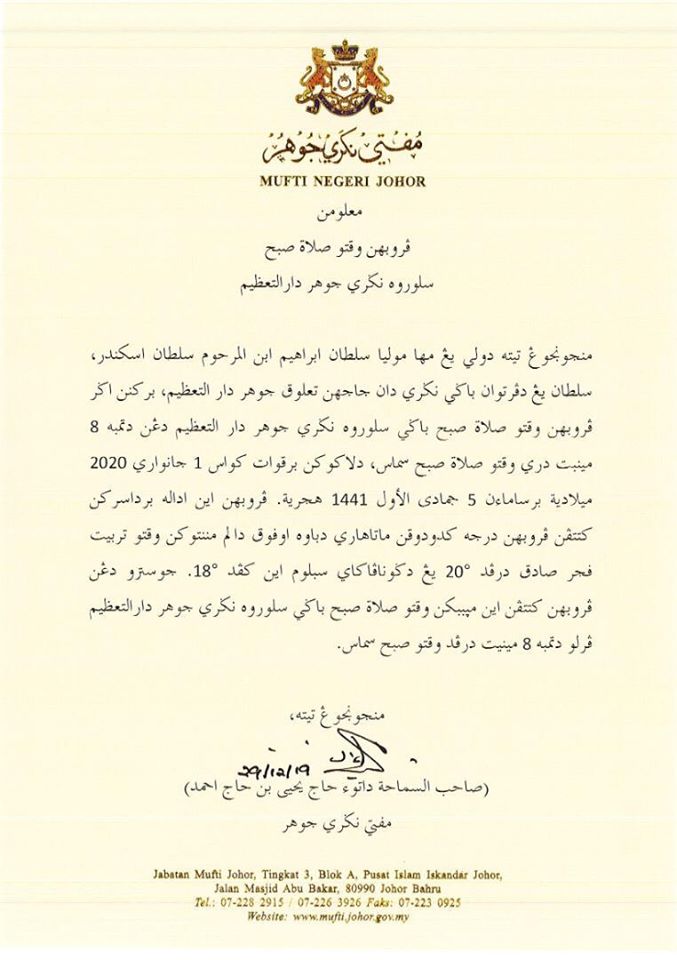 مفتي نݢري جوهر
MUFTI NEGERI JOHOR
معلومن
ڤروبهن وقتو صلاة صبح
سلوروه نݢري جوهر دارالتعظيم
منجونجوڠ تيته دولي يڠ مها موليا سلطان ابراهيم ابن المرحوم سلطان اسكندر،
سلطان يڠ دڤرتوان باݢي نݢري دان جاجهن تعلوق جوهر دار التعظيم، بركنن اݢر
ڤروبهن وقتو صلاة صبح باݢي سلوروه نݢري جوهر دار التعظيم دڠن دتمبه 8
مينيت دري وقتو صلاة صبح سماس، دلاكوكن برقوات كواس 1 جانواري 2020
ميلادية برساماءن 5 جمادى الأول 1441 هجرية. ڤروبهن اين اداله برداسركن
كتتڤن ڤروبهن درجه كدودوقن ماتاهاري دباوه اوفوق دالم مننتوكن وقتو تربيت
فجر صادق درڤد °20 يڠ دݢوناڤاكاي سبلوم اين كڤد °18. جوسترو دڠن
ڤروبهن كتتڤن اين مڽببكن وقتو صلاة صبح باݢي سلوروه نݢري جوهر دارالتعظيم
ڤرلو دتمبه 8 مينيت درڤد وقتو صبح سماس.
منجونجوڠ تيته،
29/12/19
(صاحب السماحة داتوء حاج يحيى بن حاج احمد)
مفتي نݢري جوهر
Jabatan Mufti Johor, Tingkat 3, Blok A, Pusat Islam Iskandar Johor,
Jalan Masjid Abu Bakar, 80990 Johor Bahru
Tel.: 07-228 2915 / 07-226 3926 Faks: 07-223 0925
Website: www.mufti.johor.gov.my